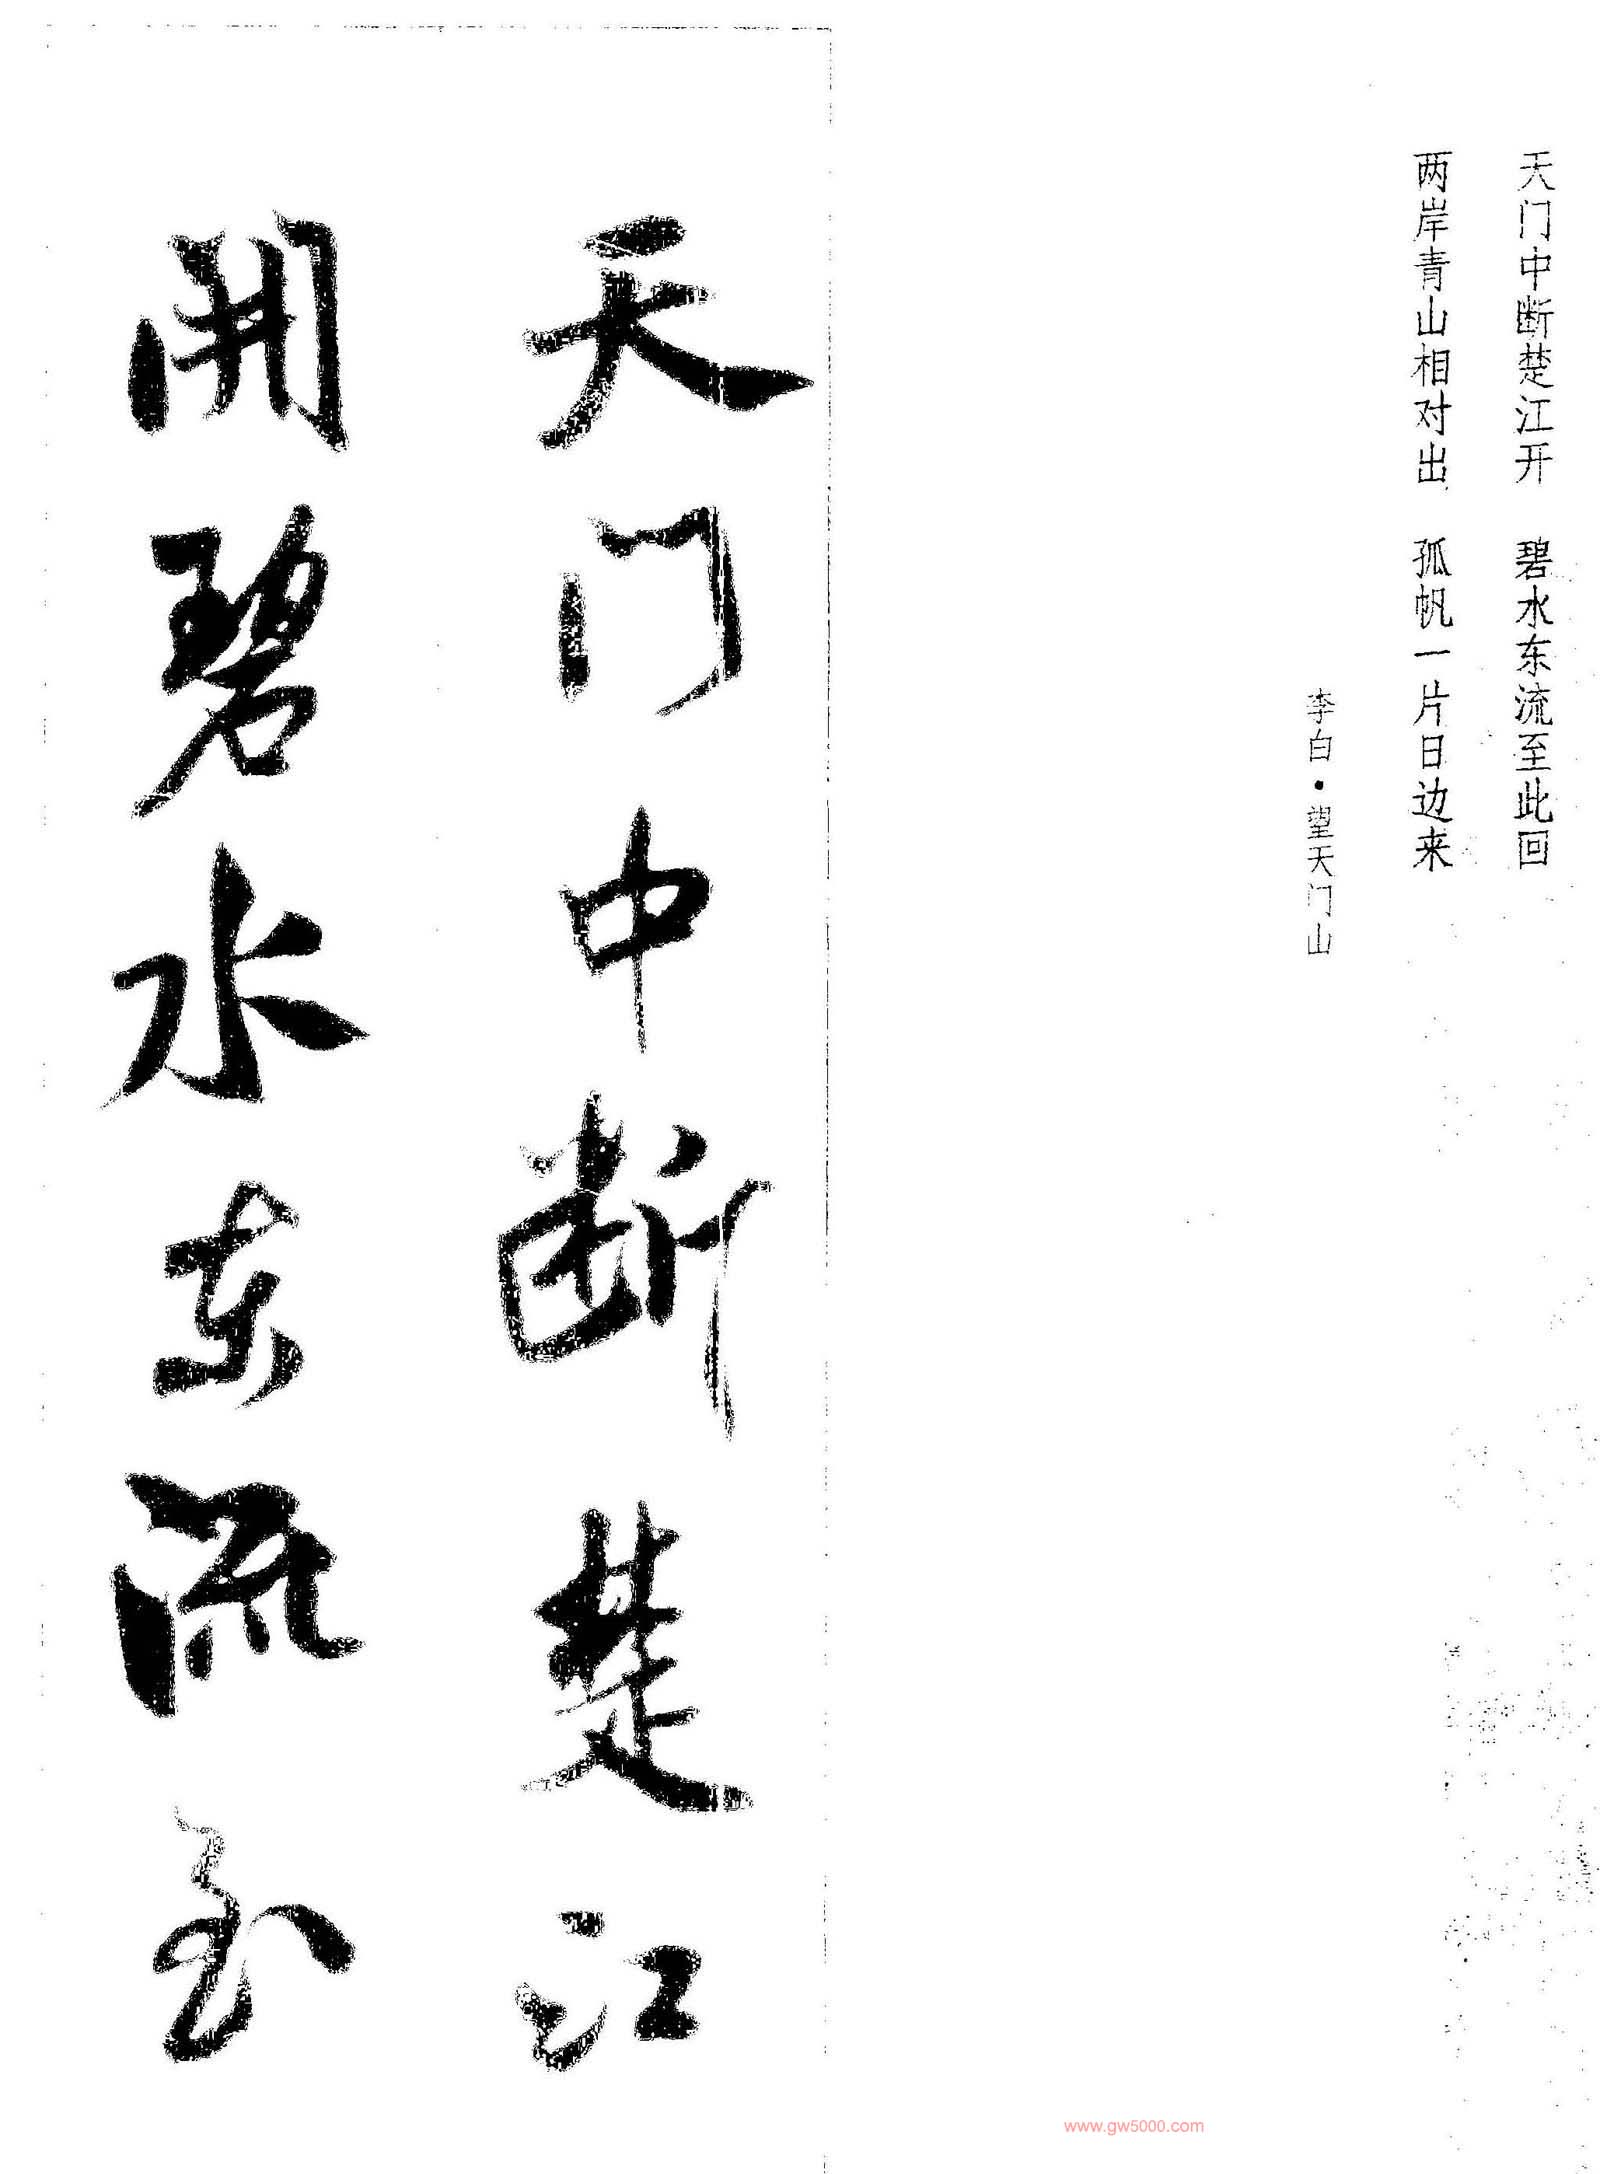 天门中断楚江开　碧水东流至此回
两岸青山相对出　孤帆一片日边来
李白·望天门山
天门中断楚江
開碧水东流至
www.gw5000.com